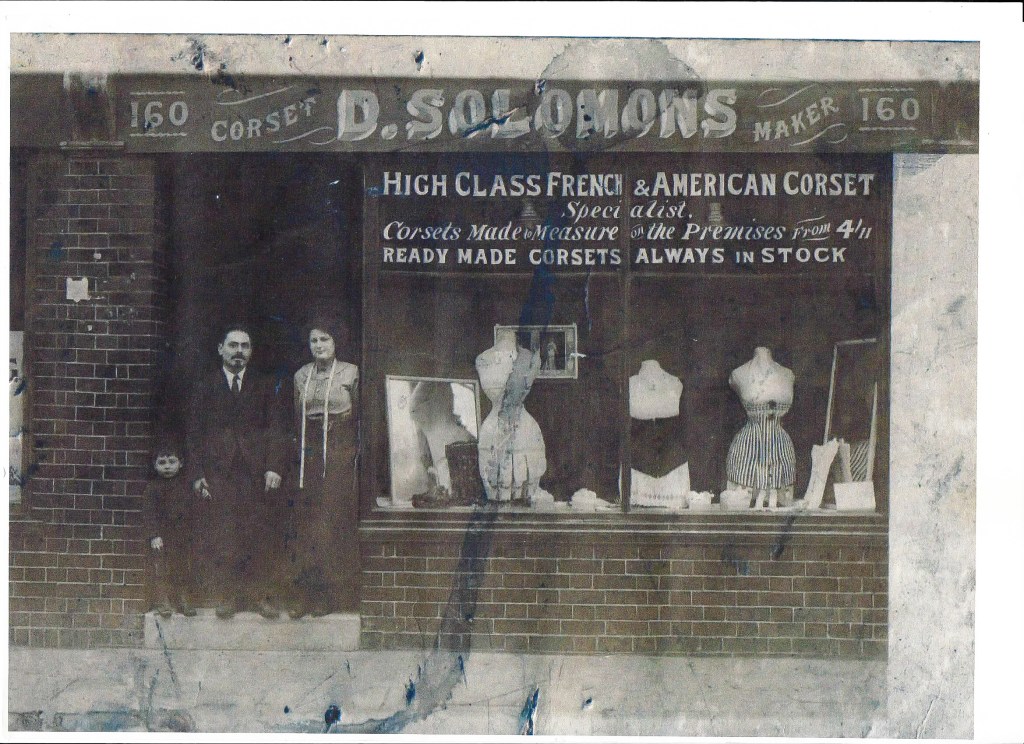 160 CORSET D. SOLOMONS MAKER 160
HIGH CLASS FRENCH & AMERICAN CORSET
Specialist.
Corsets Made to Measure on the Premises From 4/11
READY MADE CORSETS ALWAYS IN STOCK